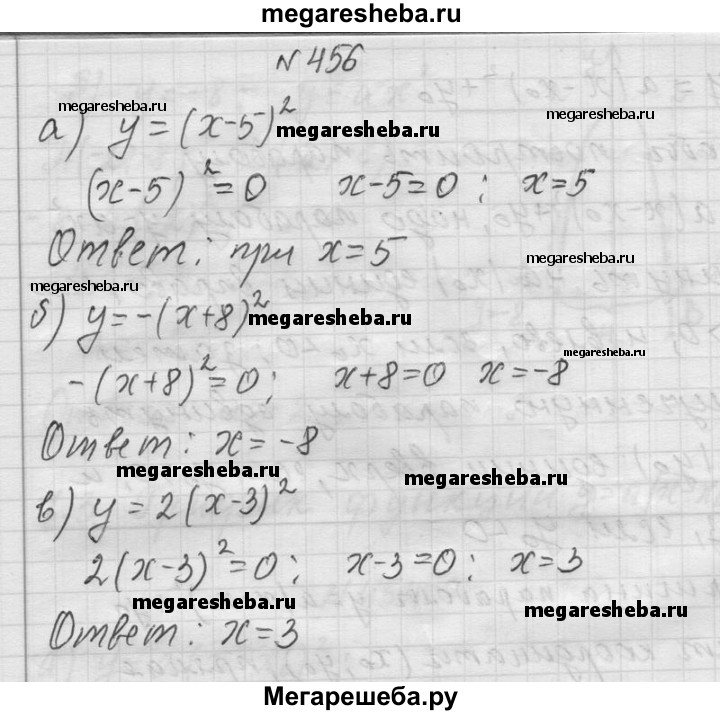 megaresheba.ru
N 456
megaresheba.ru
а) y = (x-5)² megaresheba.ru
(x-5)² = 0 x-5=0 ; x=5
Ответ: при x=5 megaresheba.ru
megaresheba.ru
б) y = -(x+8)² megaresheba.ru
-(x+8)² = 0; x+8=0 x=-8 megaresheba.ru
Ответ: x=-8
megaresheba.ru megaresheba.ru
в) y = 2(x-3)²
2(x-3)² = 0; x-3=0; x=3
megaresheba.ru megaresheba.ru
Ответ: x=3
Мегарешеба.ру